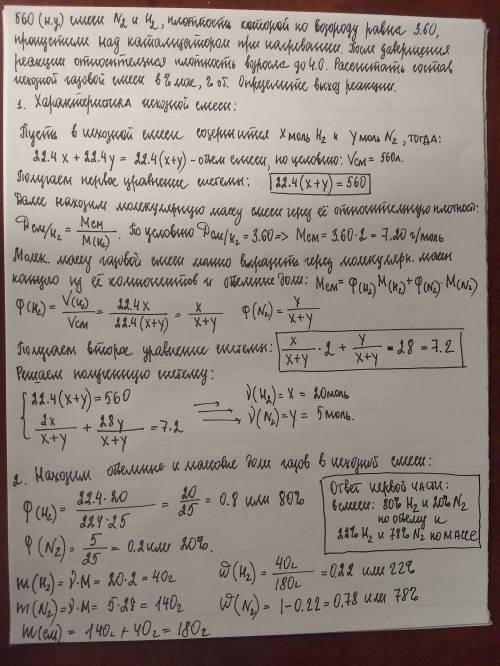 560 (н.у.) смеси N₂ и H₂, плотность которой по водороду равна 3.60,
пропустили над катализатором при нагревании. После завершения
реакции относительная плотность возросла до 4.0. Рассчитать состав
исходной газовой смеси в % мас, % об. Определите выход реакции.
1. Характеристика исходной смеси:
Пусть в исходной смеси содержится x моль H₂ и y моль N₂, тогда:
22.4x + 22.4y = 22.4(x+y) - объем смеси, по условию: Vсм = 560л.
Получаем первое уравнение системы: 22.4(x+y) = 560
Далее находим молекулярную массу смеси через её относительную плотность:
Dсм/H₂ = Mсм / M(H₂). По условию Dсм/H₂ = 3.60 => Mсм = 3.60·2 = 7.20 г/моль
Молек. массу газовой смеси можно выразить через молекулярн. массы
каждого из её компонентов и объемные доли: Mсм = φ(H₂)·M(H₂) + φ(N₂)·M(N₂)
φ(H₂) = V(H₂)/Vсм = 22.4x / 22.4(x+y) = x/(x+y) φ(N₂) = y/(x+y)
Получаем второе уравнение системы: x/(x+y) · 2 + y/(x+y) = 28 = 7.2
Решаем полученную систему:
{ 22.4(x+y) = 560 ν(H₂) = x = 20моль
2x/(x+y) + 28y/(x+y) = 7.2 ν(N₂) = y = 5 моль.
2. Находим объемные и массовые доли газов в исходной смеси:
φ(H₂) = 22.4·20 / 22.4·25 = 20/25 = 0.8 или 80%
φ(N₂) = 5/25 = 0.2 или 20%.
m(H₂) = ν·M = 20·2 = 40г
m(N₂) = ν·M = 5·28 = 140г
m(см) = 140г + 40г = 180г
Ответ первой части:
в смеси: 80% H₂ и 20% N₂
по объему и
22% H₂ и 78% N₂ по массе
ω(H₂) = 40г / 180г = 0.22 или 22%
ω(N₂) = 1 - 0.22 = 0.78 или 78%